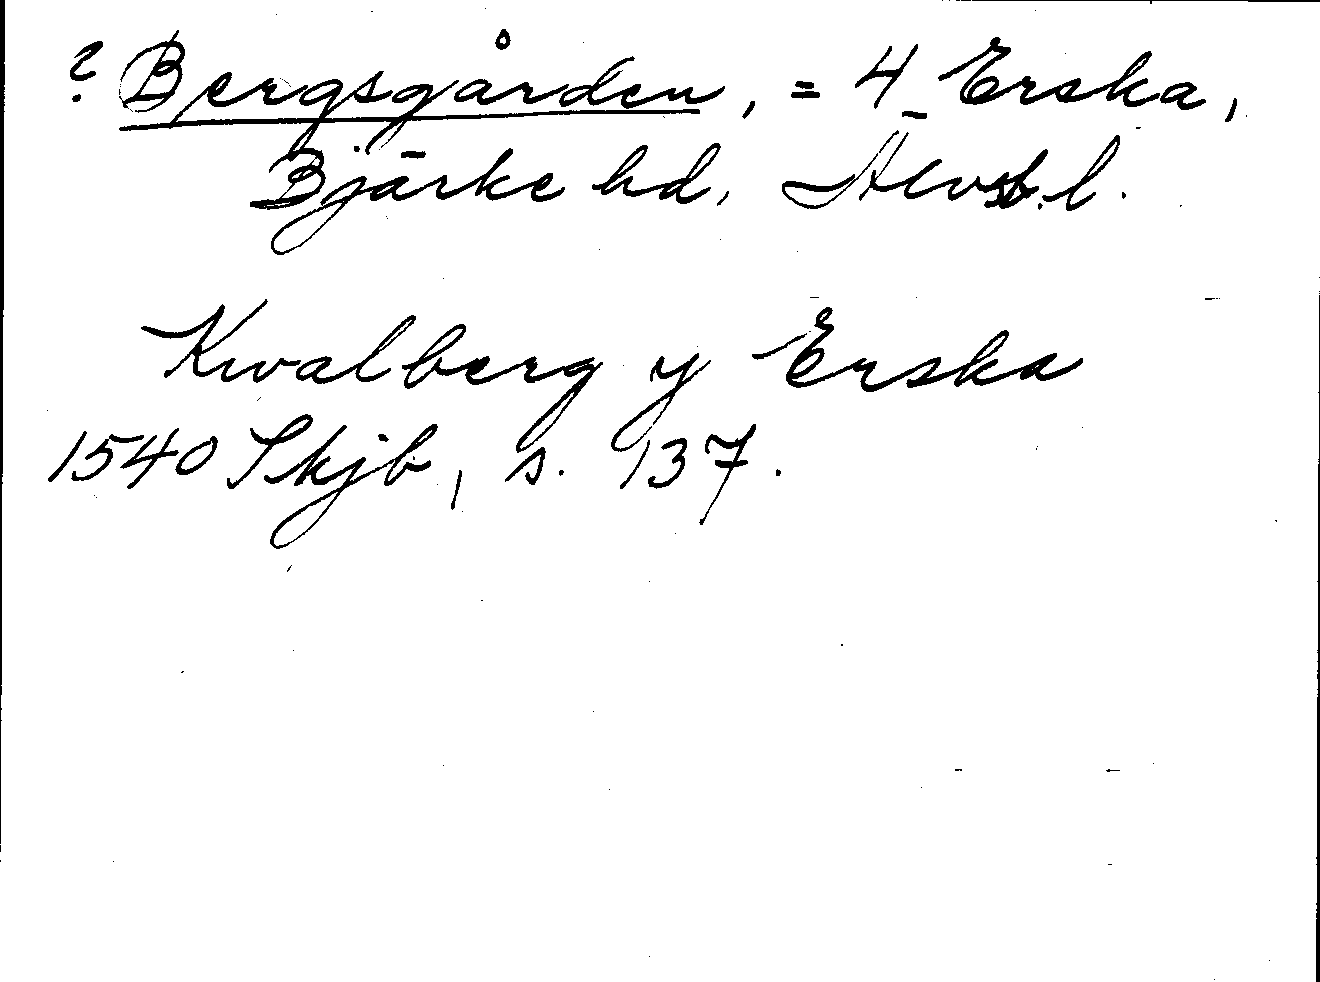 ? Bergsgården, = 4 Erska,
Bjärke hd, Älvsb. l.
Kwalberg y Erska
1540 Skjb, s. 137.